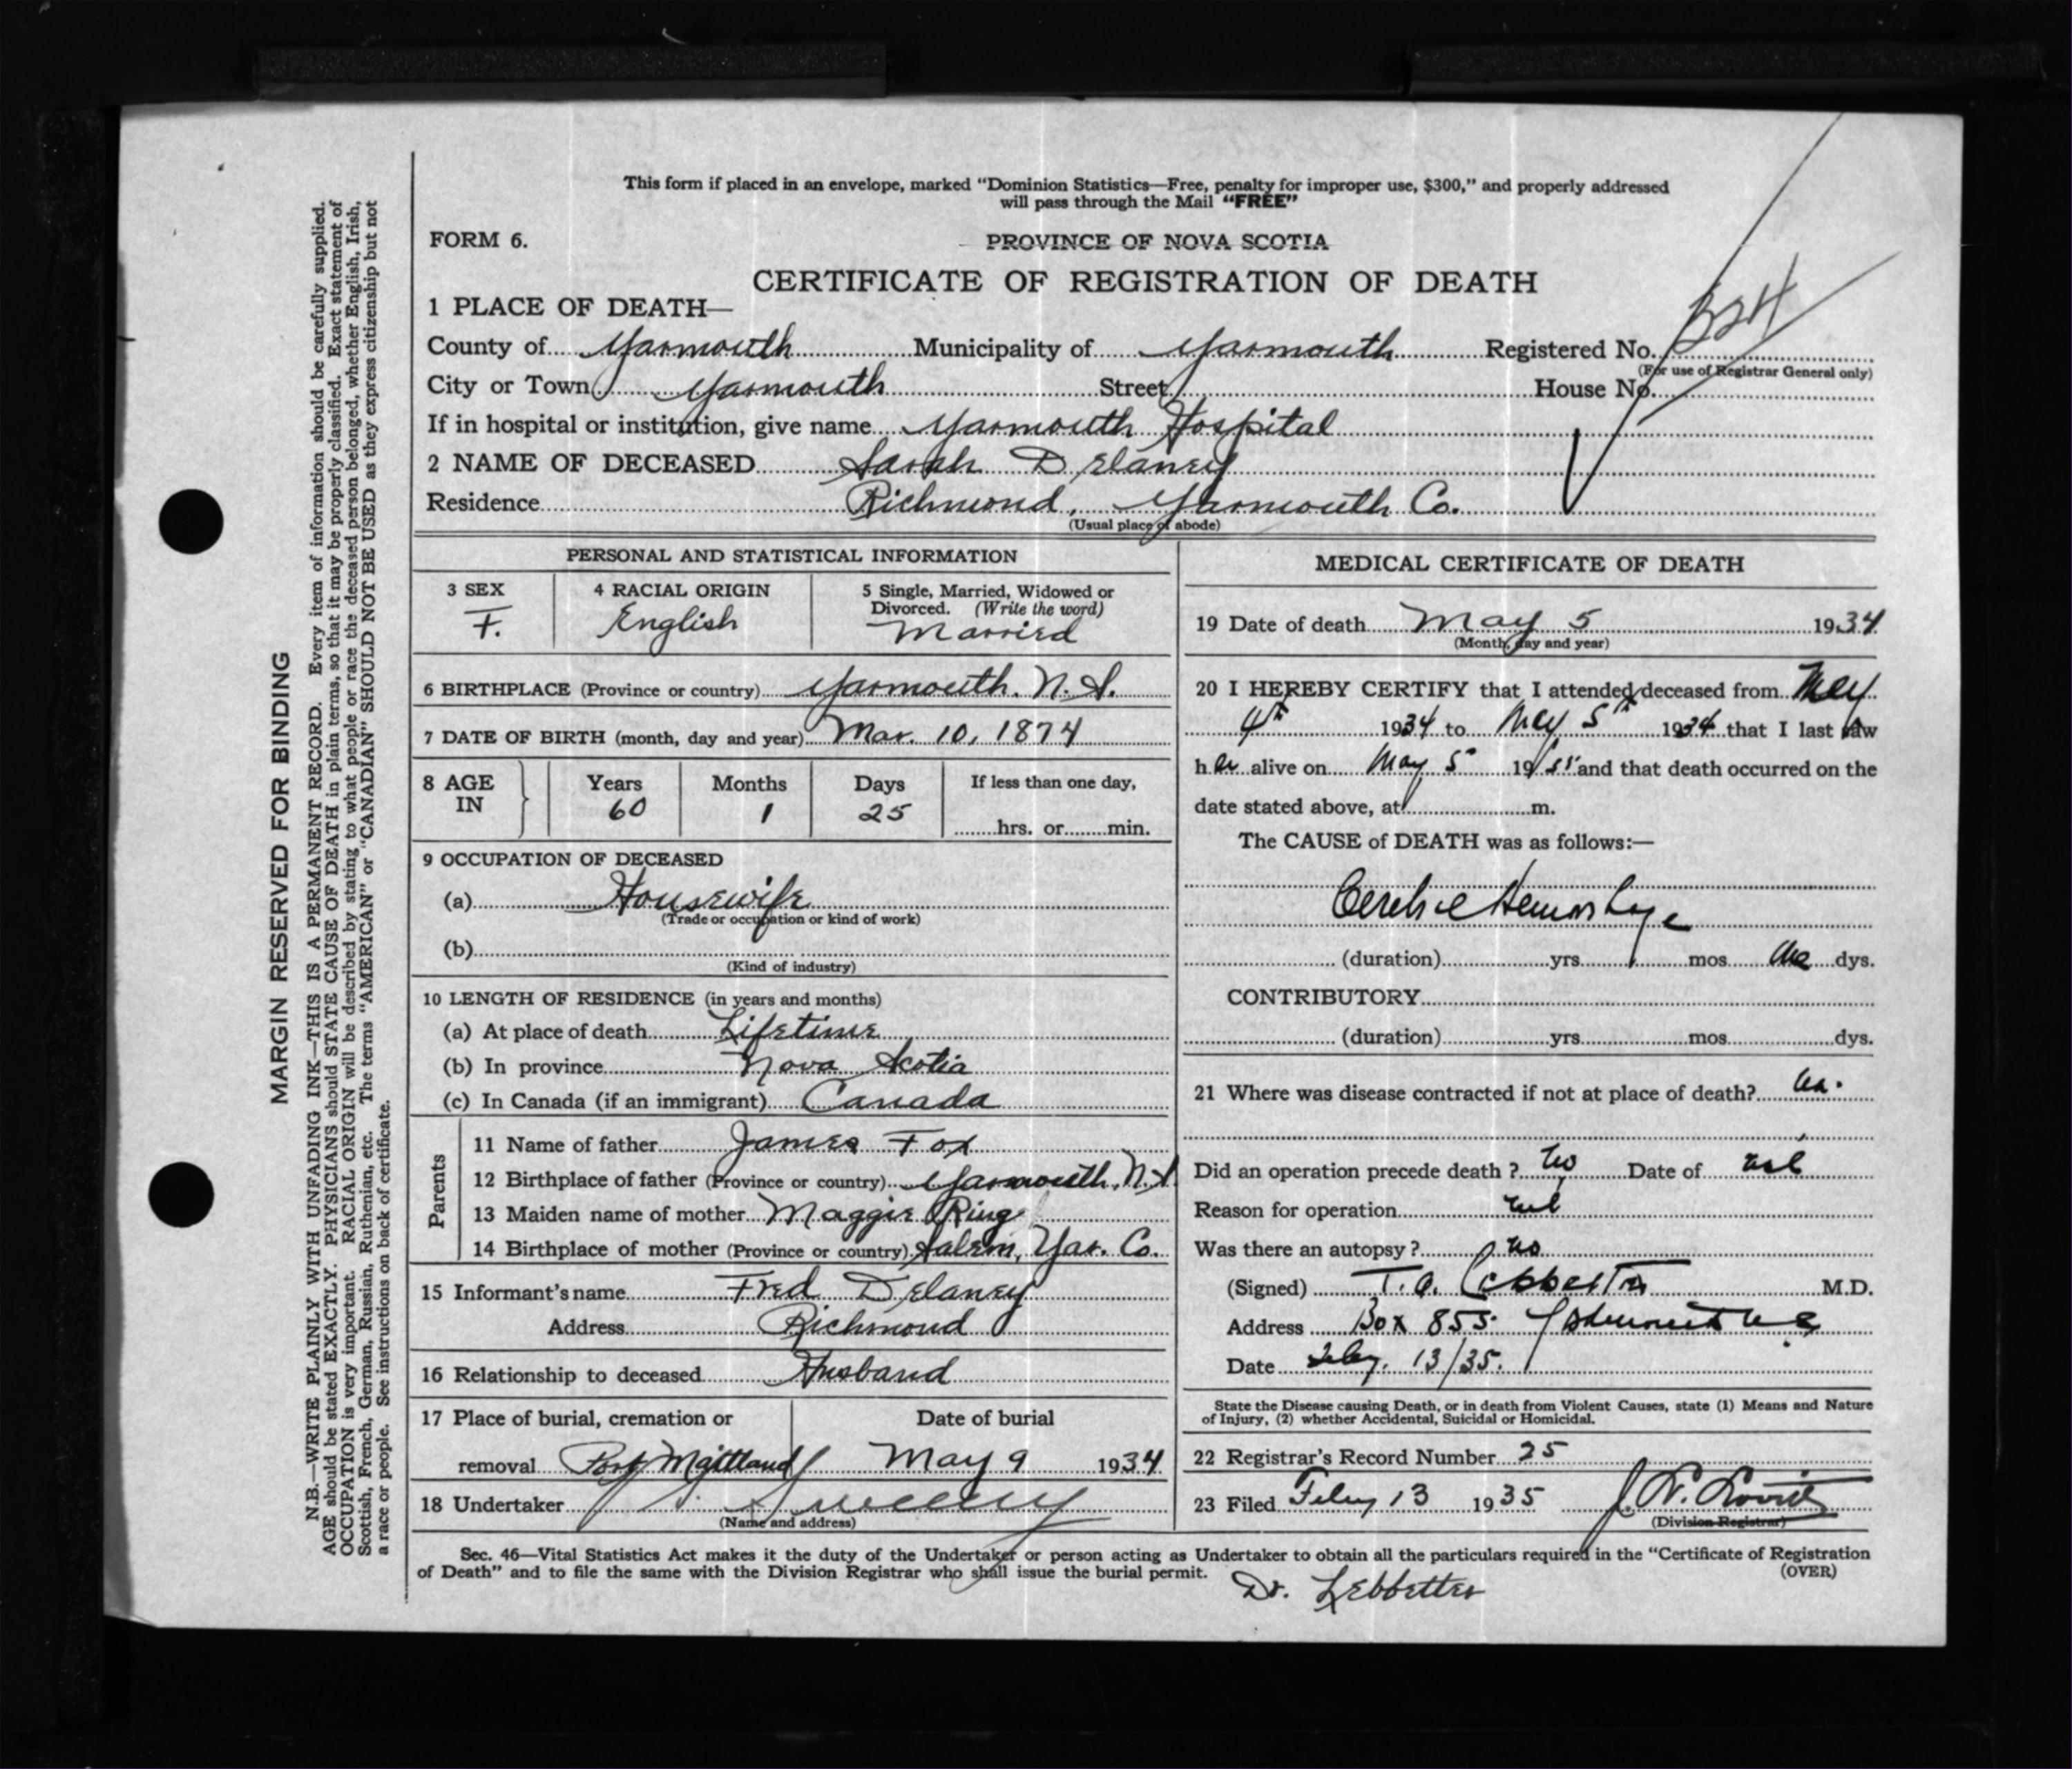 This form if placed in an envelope, marked “Dominion Statistics—Free, penalty for improper use, $300,” and properly addressed
will pass through the Mail “FREE”
FORM 6.
PROVINCE OF NOVA SCOTIA
CERTIFICATE OF REGISTRATION OF DEATH
1 PLACE OF DEATH—
County of Yarmouth Municipality of Yarmouth Registered No.
(For use of Registrar General only)
City or Town Yarmouth Street House No.
If in hospital or institution, give name Yarmouth Hospital
2 NAME OF DECEASED Sarah Delaney
Residence Richmond, Yarmouth Co.
(Usual place of abode)
PERSONAL AND STATISTICAL INFORMATION
3 SEX 4 RACIAL ORIGIN 5 Single, Married, Widowed or
Divorced. (Write the word)
F. English Married
6 BIRTHPLACE (Province or country) Yarmouth. N.S.
7 DATE OF BIRTH (month, day and year) Mar. 10, 1874
8 AGE IN Years Months Days If less than one day,
60 1 25
hrs. or min.
9 OCCUPATION OF DECEASED
(a) Housewife
(Trade or occupation or kind of work)
(b)
(Kind of industry)
10 LENGTH OF RESIDENCE (in years and months)
(a) At place of death Lifetime
(b) In province Nova Scotia
(c) In Canada (if an immigrant) Canada
Parents
11 Name of father James Fox
12 Birthplace of father (Province or country) Yarmouth, N.S.
13 Maiden name of mother Maggie Ring
14 Birthplace of mother (Province or country) Salem, Yar. Co.
15 Informant's name Fred Delaney
Address Richmond
16 Relationship to deceased Husband
17 Place of burial, cremation or Date of burial
removal Port Maitland May 9 1934
18 Undertaker Sweeny
(Name and address)
MEDICAL CERTIFICATE OF DEATH
19 Date of death May 5 1934
(Month, day and year)
20 I HEREBY CERTIFY that I attended deceased from May
4th 1934 to May 5th 1934 that I last saw
her alive on May 5 19 and that death occurred on the
date stated above, at m.
The CAUSE of DEATH was as follows:—
Hemorrhage
(duration) yrs mos dys.
CONTRIBUTORY
(duration) yrs mos dys.
21 Where was disease contracted if not at place of death?
Did an operation precede death? no Date of
Reason for operation
Was there an autopsy? no
(Signed) T. A. Lebbetter M.D.
Address Box 855 Yarmouth N S
Date Feby. 13/35.
State the Disease causing Death, or in death from Violent Causes, state (1) Means and Nature
of Injury, (2) whether Accidental, Suicidal or Homicidal.
22 Registrar's Record Number 25
23 Filed Feby 13 1935
(Division Registrar)
Sec. 46—Vital Statistics Act makes it the duty of the Undertaker or person acting as Undertaker to obtain all the particulars required in the “Certificate of Registration
of Death” and to file the same with the Division Registrar who shall issue the burial permit. (OVER)
Dr. Lebbetter
MARGIN RESERVED FOR BINDING
N.B.—WRITE PLAINLY WITH UNFADING INK—THIS IS A PERMANENT RECORD. Every item of information should be carefully supplied.
AGE should be stated EXACTLY. PHYSICIANS should STATE CAUSE OF DEATH in plain terms, so that it may be properly classified. Exact statement of
OCCUPATION is very important. RACIAL ORIGIN will be described by stating to what people or race the deceased person belonged, whether English, Irish,
Scottish, French, German, Russian, Ruthenian, etc. The terms “AMERICAN” or “CANADIAN” SHOULD NOT BE USED as they express citizenship but not
a race or people. See instructions on back of certificate.